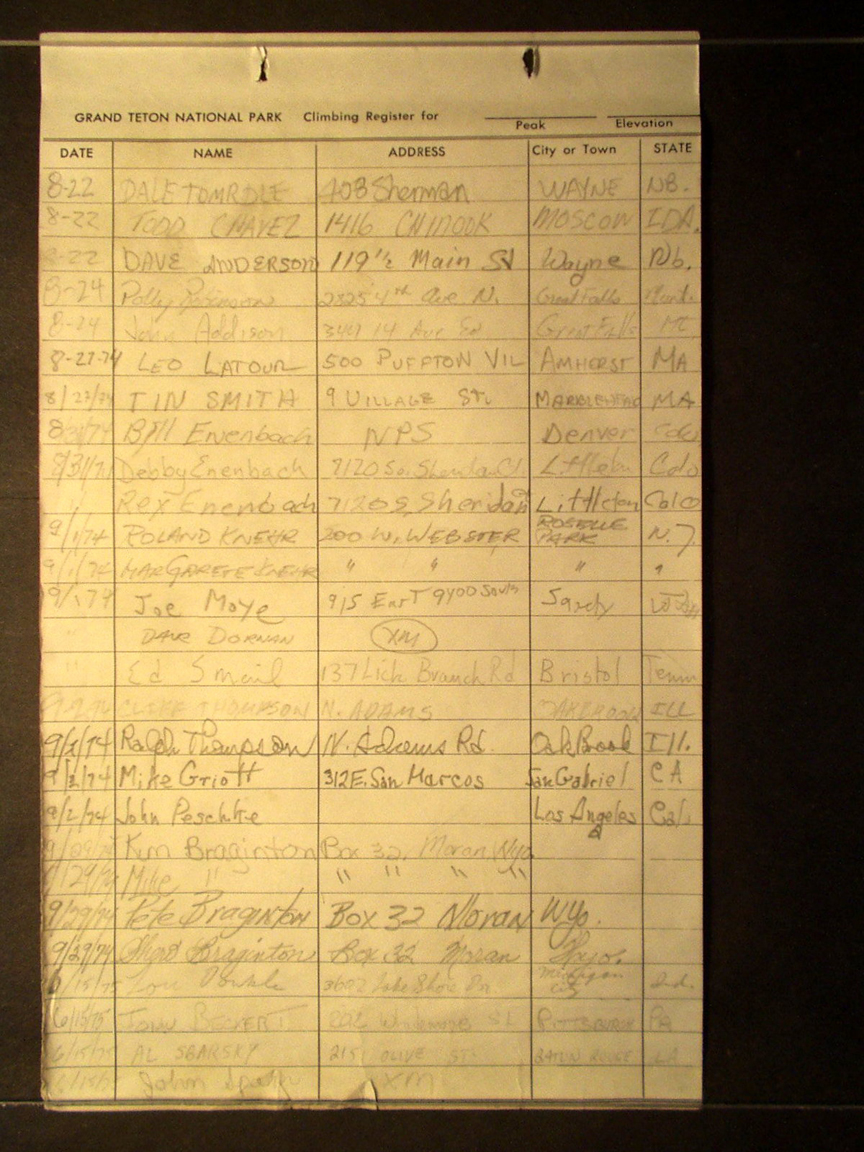 GRAND TETON NATIONAL PARK Climbing Register for
Peak Elevation
DATE NAME ADDRESS City or Town STATE
8-22 DALE TOMRDLE 403 Sherman WAYNE NB.
8-22 TODD CHAVEZ 1416 CHINOOK MOSCOW IDA.
8-22 DAVE ANDERSON 119 1/2 Main St Wayne Nb.
8-24 Polly Robinson 2825 4th Ave N. Great Falls Mont.
8-24 John Addison 14 Ave Great Falls MT
8-27-74 LEO LATOUR 500 PUFFTON VIL AMHERST MA
8/27/74 TIN SMITH 9 VILLAGE ST. MARBLEHEAD MA
8/31/74 Bill Enenbach NPS Denver Colo
8/31/74 Debby Enenbach 7120 So. Sheridan Ct. Littleton Colo
" Rex Enenbach 7120 S. Sheridan Ct Littleton Colo
9/1/74 ROLAND KNEHR 200 W. WEBSTER ROSELLE PARK N.J.
9/1/74 MARGARETE KNEHR " " " "
9/1/74 Joe Moye 915 East 9400 South Sandy Utah
" DAVE DORNAN XM
" Ed Smail 137 Lick Branch Rd Bristol Tenn
9-2-74 CLIFF THOMPSON N. ADAMS OAKBROOK ILL
9/2/74 Ralph Thompson N. Adams Rd. Oak Brook Ill.
9/2/74 Mike Griott 312 E. San Marcos San Gabriel CA
9/2/74 John Peschke Los Angeles Cal.
9/29/74 Kim Braginton Box 32, Moran Wyo
9/29/74 Mike " " " " "
9/29/74 Pete Braginton Box 32 Moran Wyo.
9/29/74 Braginton Box 32 Moran Wyo.
6/15/75 Lou 3602 Lake Shore Dr Michigan City Ind.
6/15/75 TONY BECKERT 202 St PITTSBURGH PA
6/15/75 AL SBARSKY 2151 OLIVE ST. BATON ROUGE LA
6/15/75 John XM